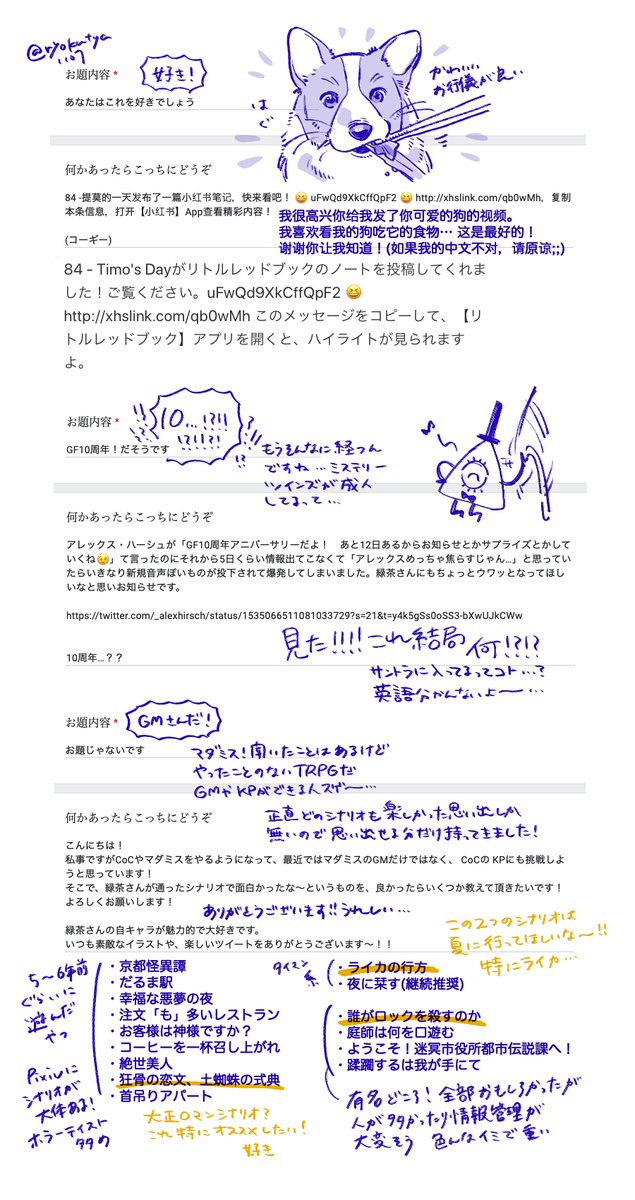 @ryokutya
1107
お題内容 *
好き!
あなたはこれを好きでしょう
はぐ
かわいい
お行儀が良い
何かあったらこっちにどうぞ
84 -提莫的一天发布了一篇小红书笔记，快来看吧！ 😆 uFwQd9XkCffQpF2 😆 http://xhslink.com/qb0wMh，复制
本条信息，打开【小红书】App查看精彩内容！
(コーギー)
我很高兴你给我发了你可爱的狗的视频。
我喜欢看我的狗吃它的食物… 这是最好的！
谢谢你让我知道！(如果我的中文不对，请原谅;;)
84 - Timo's Dayがリトルレッドブックのノートを投稿してくれま
した！ご覧ください。uFwQd9XkCffQpF2 😆
http://xhslink.com/qb0wMh このメッセージをコピーして、【リ
トルレッドブック】アプリを開くと、ハイライトが見られます
よ。
お題内容 *
10…!?!!
!?!!?!
!?
GF10周年！だそうです
もうそんなに経つん
ですね…ミステリー
ツインズが成人
してるって…
何かあったらこっちにどうぞ
アレックス・ハーシュが「GF10周年アニバーサリーだよ！　あと12日あるからお知らせとかサプライズとかして
いくね😉」て言ったのにそれから5日くらい情報出てこなくて「アレックスめっちゃ焦らすじゃん…」と思ってい
たらいきなり新規音声ぽいものが投下されて爆発してしまいました。緑茶さんにもちょっとウワッとなってほし
いなと思いお知らせです。
https://twitter.com/_alexhirsch/status/1535066511081033729?s=21&t=y4k5gSs0oSS3-bXwUJkCWw
10周年…？？
見た!!!!これ結局何!?!?
サントラに入ってるってコト…?
英語分かんないよ〜…
お題内容 *
GMさんだ!
お題じゃないです
マダミス!聞いたことはあるけど
やったことのないTRPGだ
GMやKPができる人スゲ〜…
何かあったらこっちにどうぞ
正直どのシナリオも楽しかった思い出しか
無いので思い出せる分だけ持ってきました!
こんにちは！
私事ですがCoCやマダミスをやるようになって、最近ではマダミスのGMだけではなく、 CoCの KPにも挑戦しよ
うと思っています！
そこで、緑茶さんが通ったシナリオで面白かったな〜というものを、良かったらいくつか教えて頂きたいです！
よろしくお願いします！
ありがとうございます!!うれしい…
緑茶さんの自キャラが魅力的で大好きです。
いつも素敵なイラストや、楽しいツイートをありがとうございます〜！！
この2つのシナリオは
夏に行ってほしいな〜!!
特にライカ…
5〜6年前
ぐらいに
遊んだ
やつ
Pixivに
シナリオが
大体ある!
ホラーテイスト
多め
・京都怪異譚
・だるま駅
・幸福な悪夢の夜
・注文「も」多いレストラン
・お客様は神様ですか？
・コーヒーを一杯召し上がれ
・絶世美人
・狂骨の恋文、土蜘蛛の式典
・首吊りアパート
大正ロマンシナリオ?
これ特にオススメしたい!
好き
タイマン
系
・ライカの行方
・夜に棊す(継続推奨)
・誰がロックを殺すのか
・庭師は何を口遊む
・ようこそ！迷冥市役所都市伝説課へ！
・蹂躙するは我が手にて
有名どころ!全部おもしろかったが
人が多かったり情報管理が
大変そう 色んなイミで重い